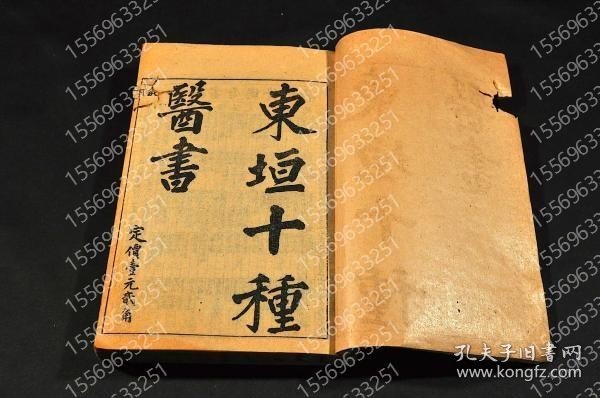 東垣十種
醫書
定價壹元貳角
15569633251
孔夫子旧书网
www.kongfz.com